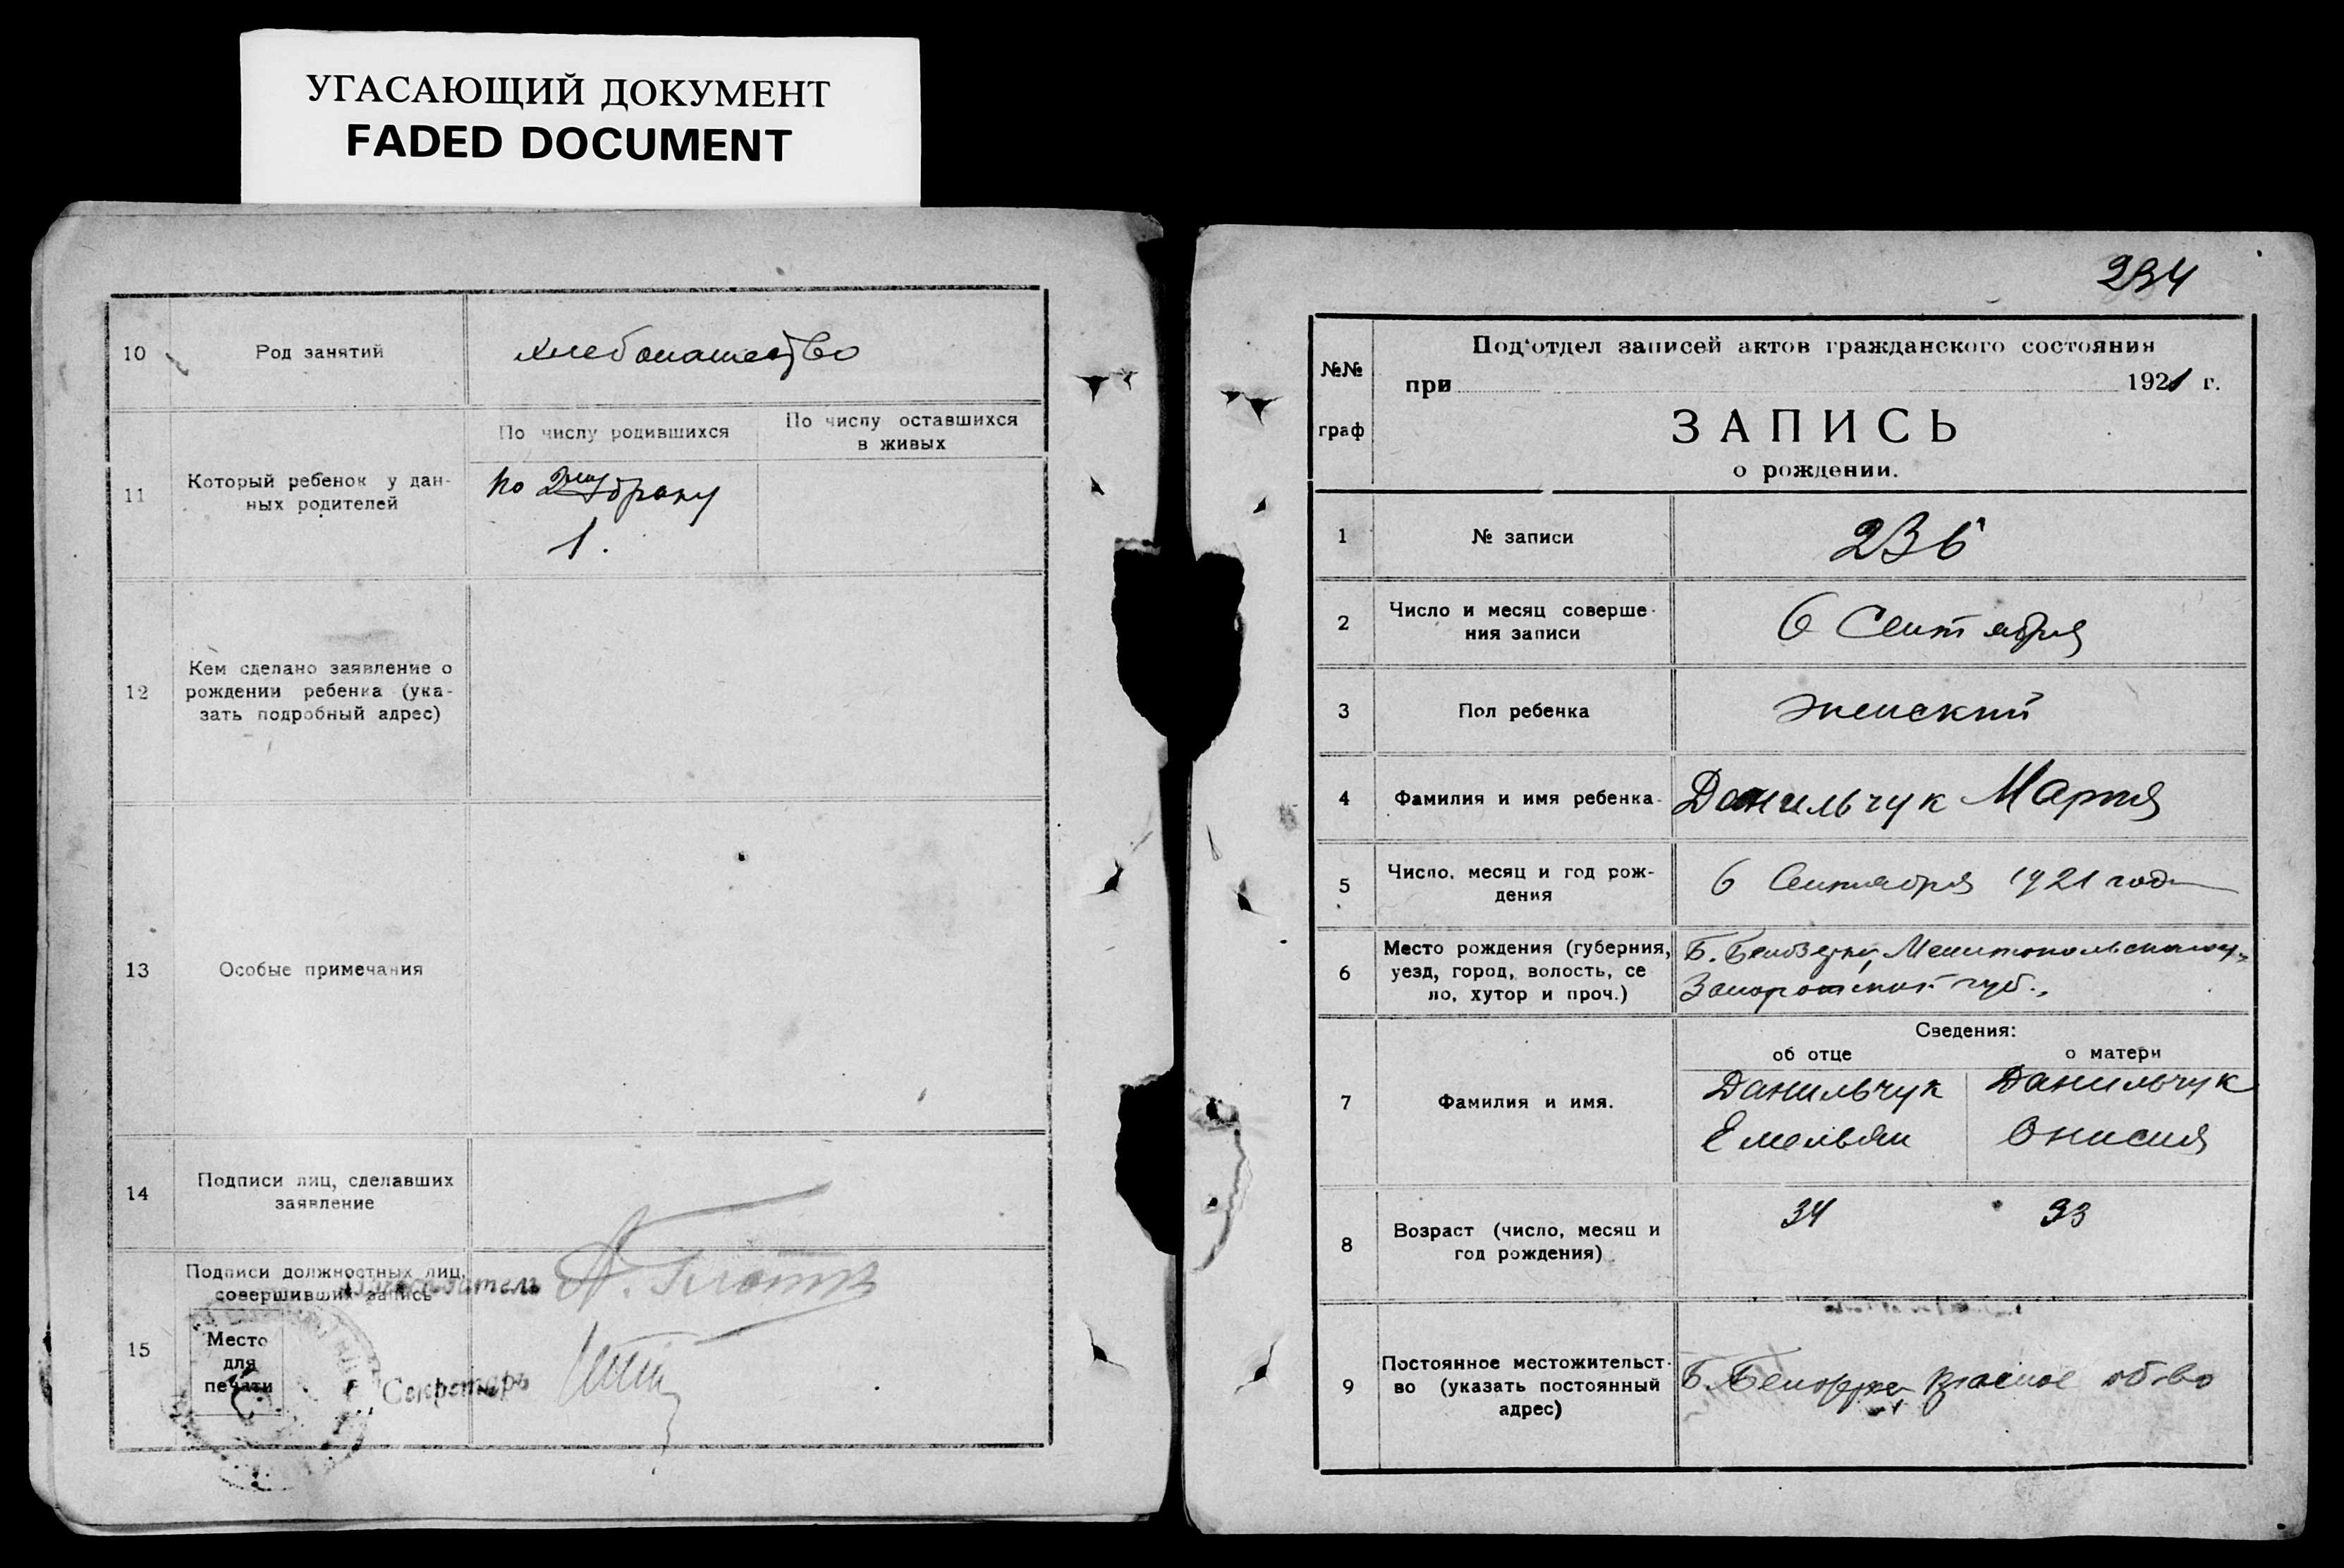 УГАСАЮЩИЙ ДОКУМЕНТ
FADED DOCUMENT
10 Род занятий хлебопашество
11 Который ребенок у дан-
ных родителей
По числу родившихся
По числу оставшихся
в живых
по 2му браку
1.
12 Кем сделано заявление о
рождении ребенка (ука-
зать подробный адрес)
13 Особые примечания
14 Подписи лиц, сделавших
заявление
15 Подписи должностных лиц,
совершивших запись
Место
для
печати
Секретарь
234
№№
граф
Под'отдел записей актов гражданского состояния
при 1921 г.
ЗАПИСЬ
о рождении.
1 № записи 236
2 Число и месяц соверше-
ния записи
6 Сентября
3 Пол ребенка женский
4 Фамилия и имя ребенка Данильчук Мария
5 Число, месяц и год рож-
дения
6 Сентября 1921 года
6 Место рождения (губерния,
уезд, город, волость, се
ло, хутор и проч.)
Б. Белозерка, Мелитопольского у.,
Запорожской губ.,
Сведения:
об отце
о матери
7 Фамилия и имя.
Данильчук
Емельян
Данильчук
Онисия
8 Возраст (число, месяц и
год рождения)
34
33
9 Постоянное местожительст-
во (указать постоянный
адрес)
Б. Белозерка, Красное об-во